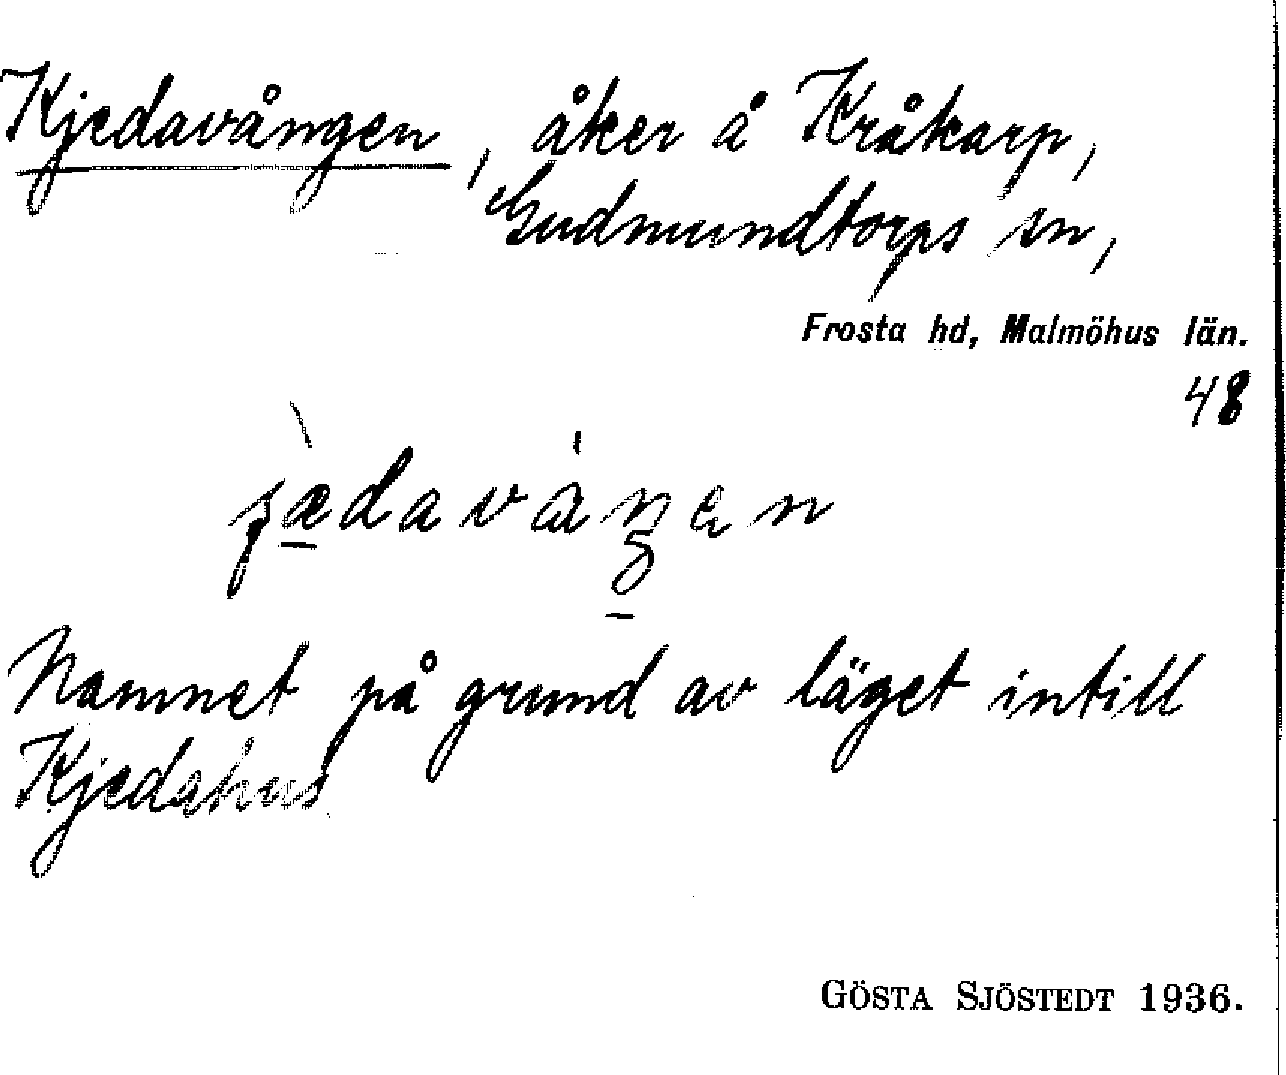 Kjedavången, åker å Kråkarp,
Gudmundtorps sn,
Frosta hd, Malmöhus län.
48
Namnet på grund av läget intill
Kjedahus
GÖSTA SJÖSTEDT 1936.